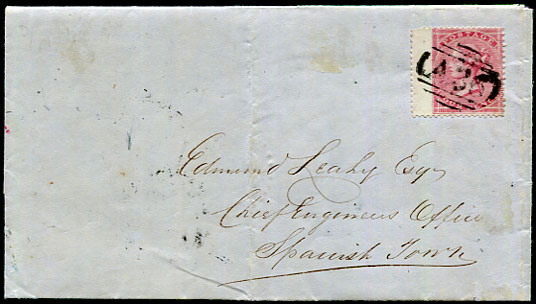 POSTAGE
Edmund Leahy Esqr
Chief Engineers Office
Spanish Town